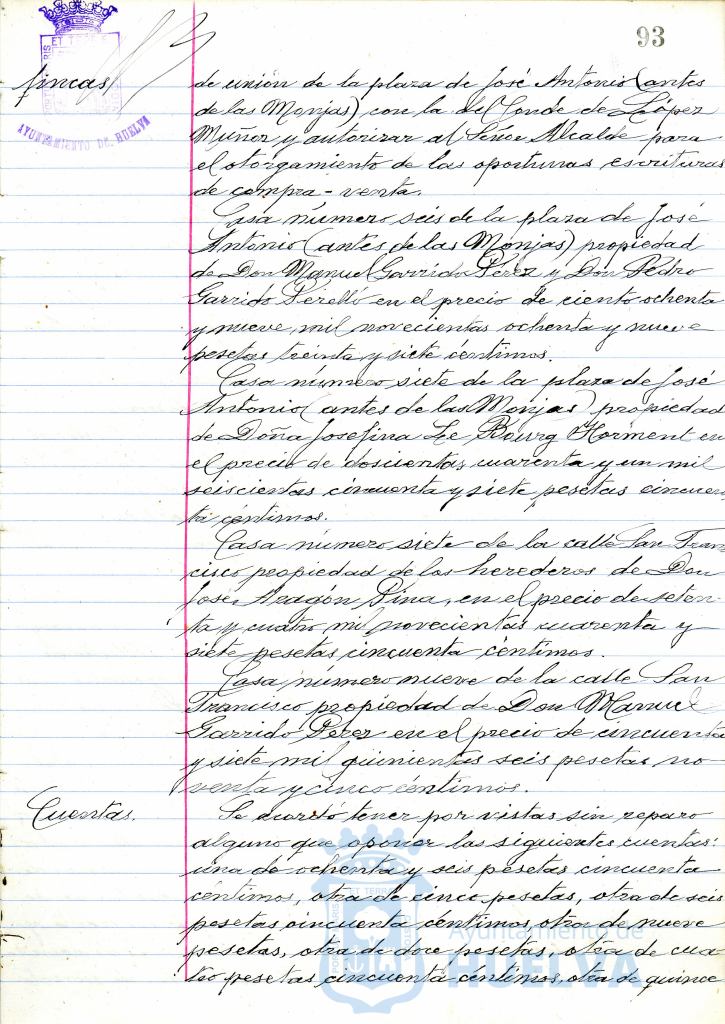 93
fincas
AYUNTAMIENTO DE HUELVA
de unión de la plaza de José Antonio (antes
de las Monjas) con la del Conde de López
Muñoz y autorizar al Señor Alcalde para
el otorgamiento de las oportunas escrituras
de compra-venta.
Casa número seis de la plaza de José
Antonio (antes de las Monjas) propiedad
de Don Manuel Garrido Pérez y Don Pedro
Garrido Perelló en el precio de ciento ochenta
y nueve mil novecientas ochenta y nueve
pesetas treinta y siete céntimos.
Casa número siete de la plaza de José
Antonio (antes de las Monjas) propiedad
de Doña Josefina Le Bourg Horment en
el precio de doscientas cuarenta y un mil
seiscientas cincuenta y siete pesetas cincuen-
ta céntimos.
Casa número siete de la calle San Fran-
cisco propiedad de los herederos de Don
José Aragón Pina, en el precio de seten-
ta y cuatro mil novecientas cuarenta y
siete pesetas cincuenta céntimos.
Casa numero nueve de la calle San
Francisco propiedad de Don Manuel
Garrido Pérez en el precio de cincuenta
y siete mil quinientas seis pesetas no-
venta y cinco céntimos.
Cuentas.
Se acordó tener por vistas sin reparo
alguno que oponer las siguientes cuentas:
una de ochenta y seis pesetas cincuenta
céntimos, otra de cinco pesetas, otra de seis
pesetas cincuenta céntimos, otra de nueve
pesetas, otra de doce pesetas, otra de cua-
tro pesetas cincuenta céntimos, otra de quince
Ayuntamiento de
HUELVA